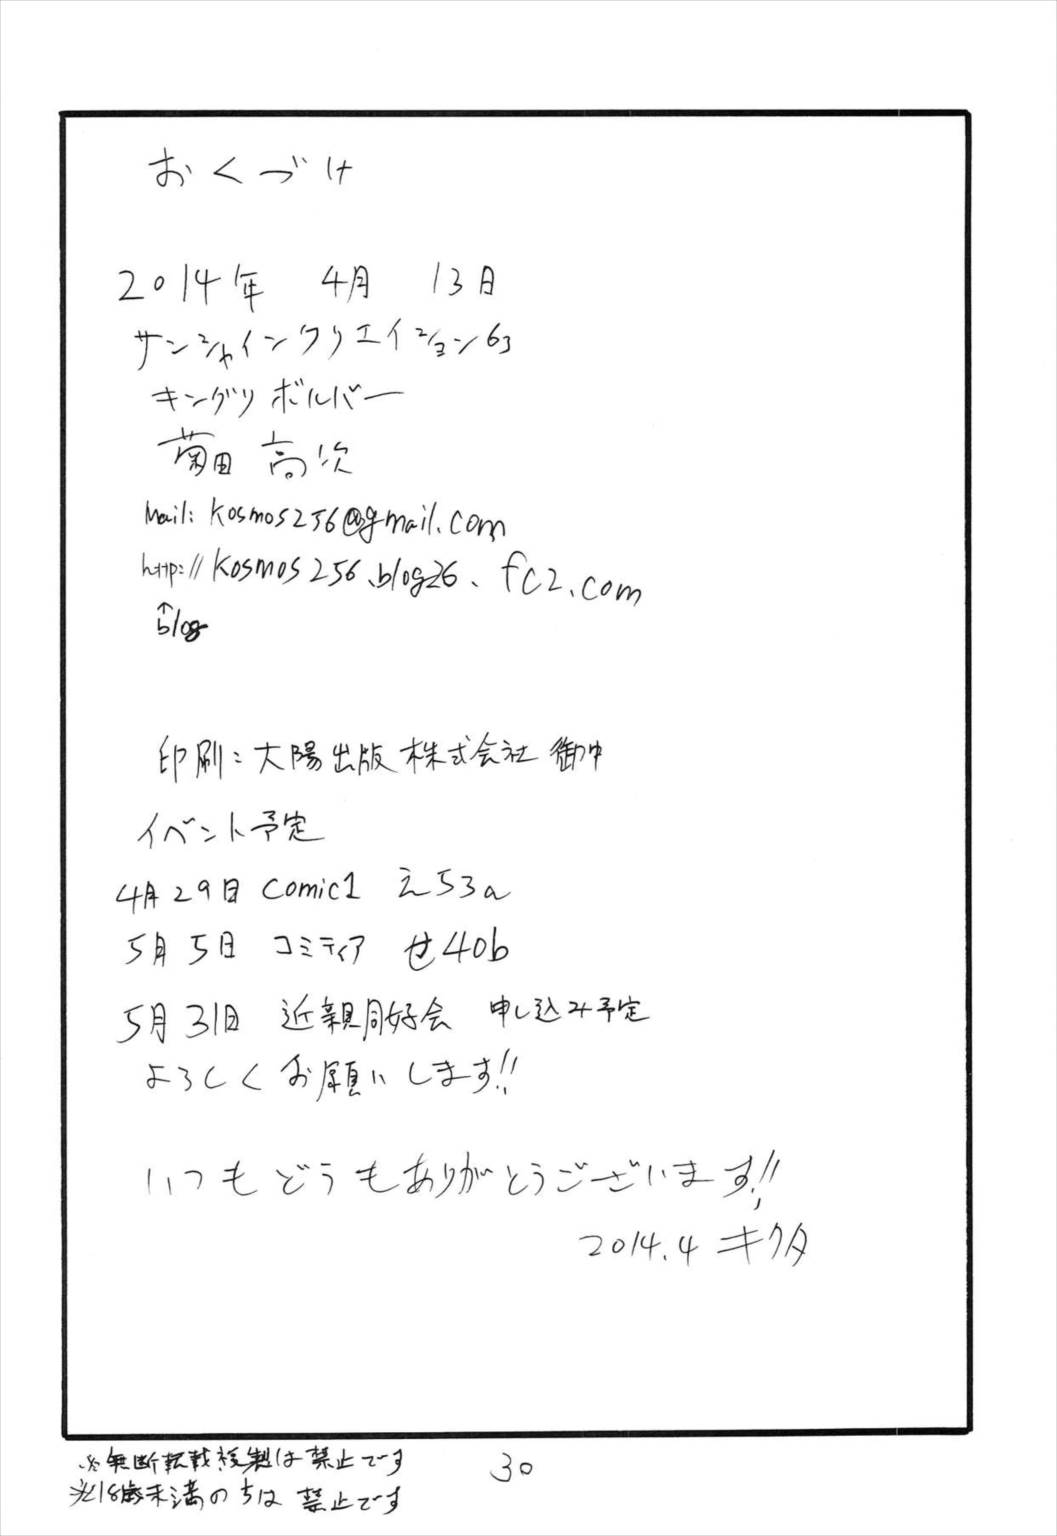 おくづけ
2014年 4月 13日
サンシャインクリエイション63
キングリボルバー
菊田 高次
Mail: kosmos256@gmail.com
http://kosmos256.blog26.fc2.com
↑
blog
印刷:大陽出版株式会社 御中
イベント予定
4月29日 comic1 え53a
5月5日 コミティア せ40b
5月31日 近親同好会 申し込み予定
よろしくお願いします!!
いつもどうもありがとうございます!!
2014.4 キクタ
※無断転載複製は禁止です
※18歳未満の
は 禁止です
30